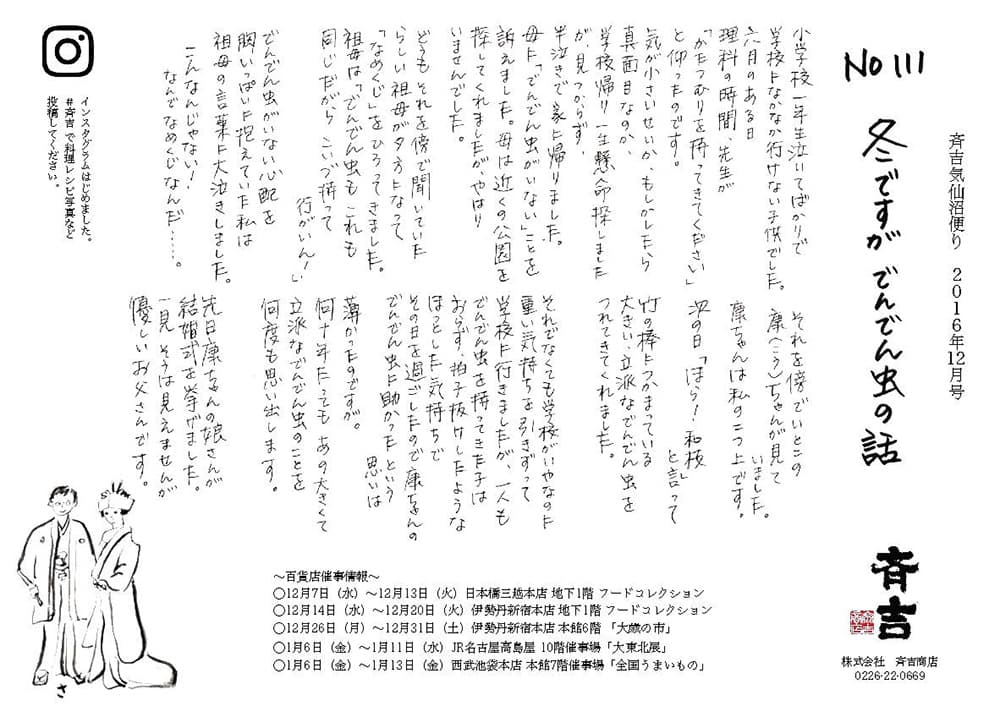 斉吉気仙沼便り　2016年12月号
No 111
冬ですが でんでん虫の話
小学校一年生泣いてばかりで
学校になかなか行けない子供でした。
六月のある日
理科の時間、先生が
「かたつむりを持ってきてください」
と仰ったのです。
気が小さいせいか、もしかしたら
真面目なのか、
学校帰り一生懸命探しました
が、見つからず、
半泣きで家に帰りました。
母に「でんでん虫がいない」ことを
訴えました。母は近くの公園を
探してくれましたが、やはり
いませんでした。
どうも それを傍で聞いていた
らしい祖母が夕方になって
「なめくじ」をひろってきました。
祖母は「でんでん虫も これも
同じだがら こいづ持って
行がいん!」
でんでん虫がいない心配を
胸いっぱいに抱えていた私は
祖母の言葉に大泣きしました。
こんなんじゃない!
なんで なめくじ なんだ……。
それを傍でいとこの
康(こう)ちゃんが見て
いました。
康ちゃんは私の二つ上です。
次の日「ほら!和枝」
と言って
竹の棒につかまっている
大きい、立派なでんでん虫を
つれてきてくれました。
それでなくても学校がいやなのに
重い気持ちを引きずって
学校に行きましたが、一人も
でんでん虫を持ってきた子は
おらず、拍子抜けしたような
ほっとした気持ちで
その日を過ごしたので康ちゃんの
でんでん虫に助かったという
思いは
薄かったのですが、
何十年たっても あの大きくて
立派なでんでん虫のことを
何度も思い出します。
先日康ちゃんの娘さんが
結婚式を挙げました。
一見 そうは見えませんが
優しいお父さんです。
インスタグラムはじめました。
#斉吉 で料理レシピ写真など
投稿してください。
さ
～百貨店催事情報～
○12月7日（水）～12月13日（火）日本橋三越本店 地下1階 フードコレクション
○12月14日（水）～12月20日（火）伊勢丹新宿本店 地下1階 フードコレクション
○12月26日（月）～12月31日（土）伊勢丹新宿本店 本館6階 「大歳の市」
○1月6日（金）～1月11日（水）JR名古屋高島屋 10階催事場「大東北展」
○1月6日（金）～1月13日（金）西武池袋本店 本館7階催事場「全国うまいもの」
斉吉
株式会社　斉吉商店
0226-22-0669